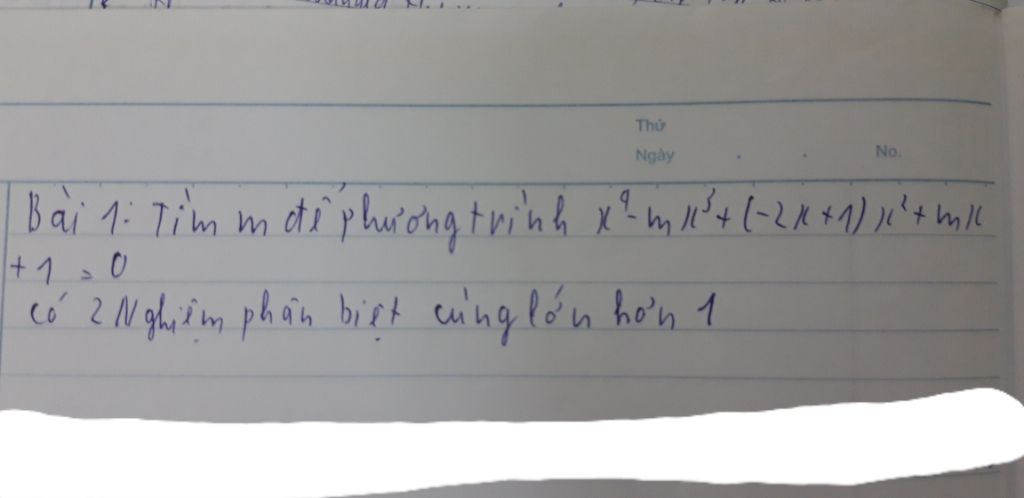 Thứ
Ngày . . No.
Bài 1: Tìm m để phương trình x⁴ - mx³ + (-2x+1)x² + mx
+ 1 = 0
có 2 Nghiệm phân biệt cùng lớn hơn 1